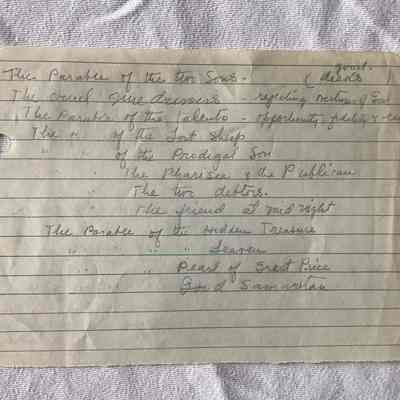 good.
The Parable of the two Sons. (deeds
The cruel Vine dressers - rejecting
The Parable of the Talents - opportunity, fidelity &
The " of the Lost Sheep
" of the Prodigal Son
" The Pharisee & the Publican
The two debtors.
The friend at midnight
The Parable of the Hidden Treasure
" " " Leaven
" " " Pearl of Great Price
" " Good Samaritan